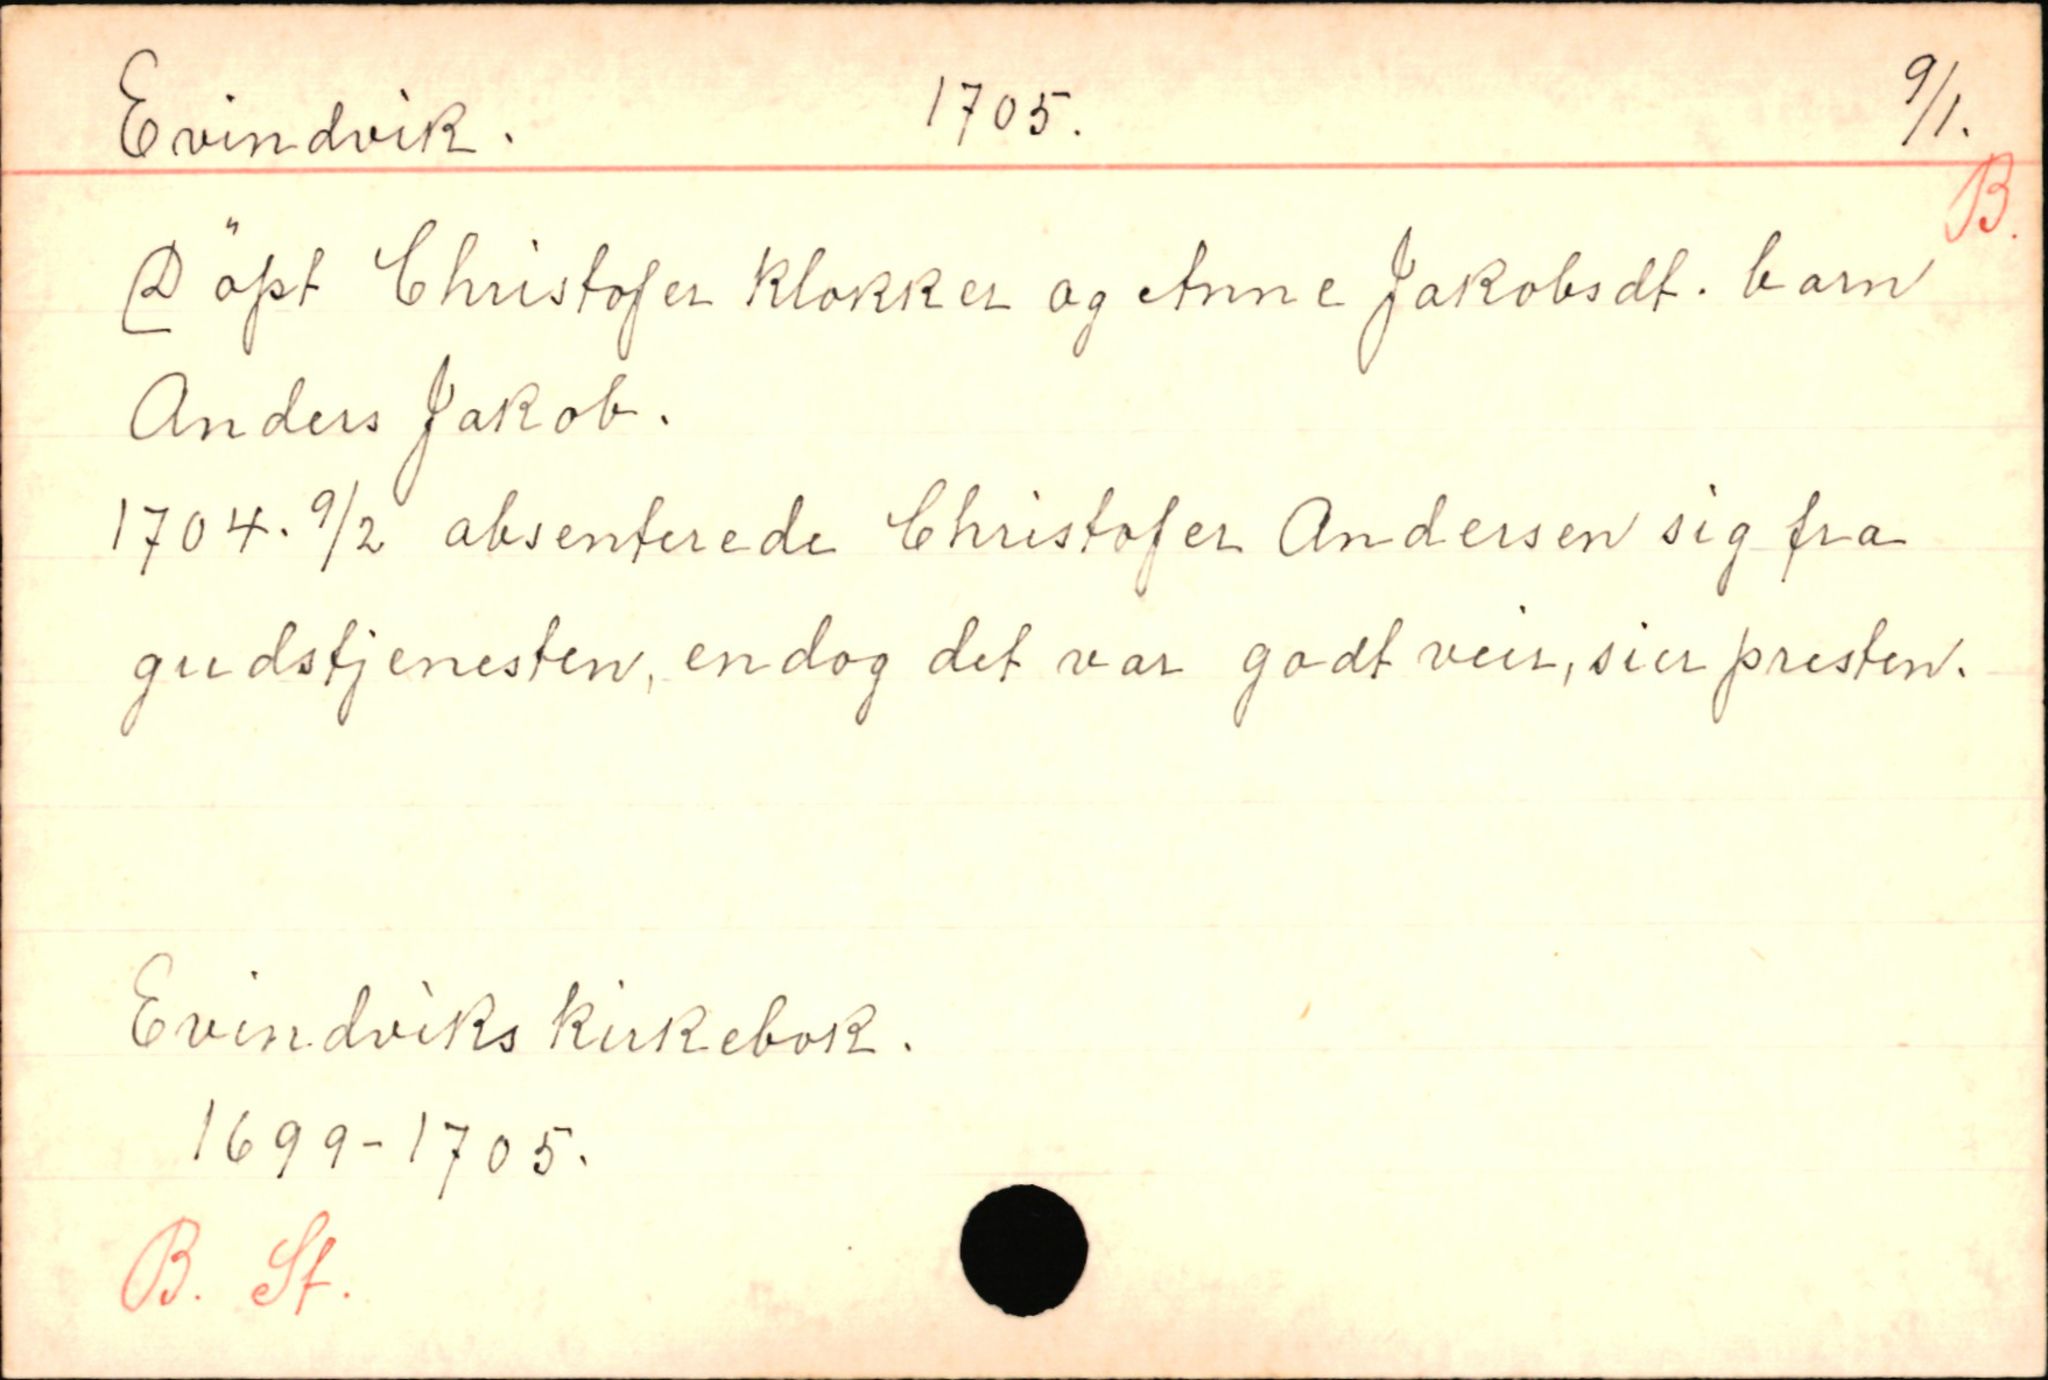 Evindvik. 1705. 9/1.
B.
Döpt Christofer Klokker og Anne Jakobsdt. barn
Anders Jakob.
1704. 9/2 absenterede Christofer Andersen sig fra
gudstjenesten, endog det var godt veir, sier presten.
Evindviks kirkebok.
1699-1705.
B. St.